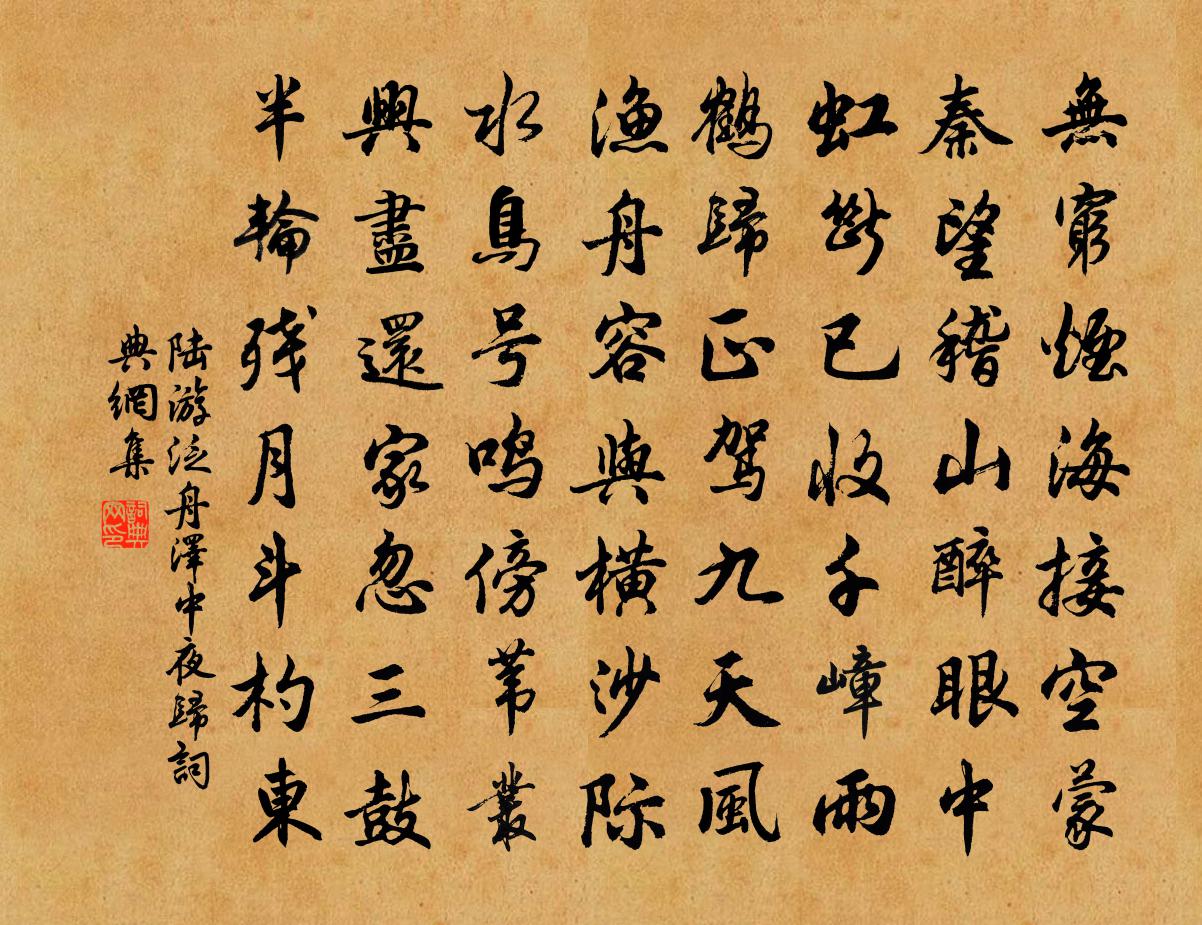 無窮煙海接空蒙
秦望稽山醉眼中
虹斷已收千嶂雨
鶴歸正駕九天風
漁舟容與橫沙际
水鳥号鸣傍苇叢
興盡還家忽三鼓
半輪残月斗杓東
陆游泛舟澤中夜歸詞
典網集
詞典网印